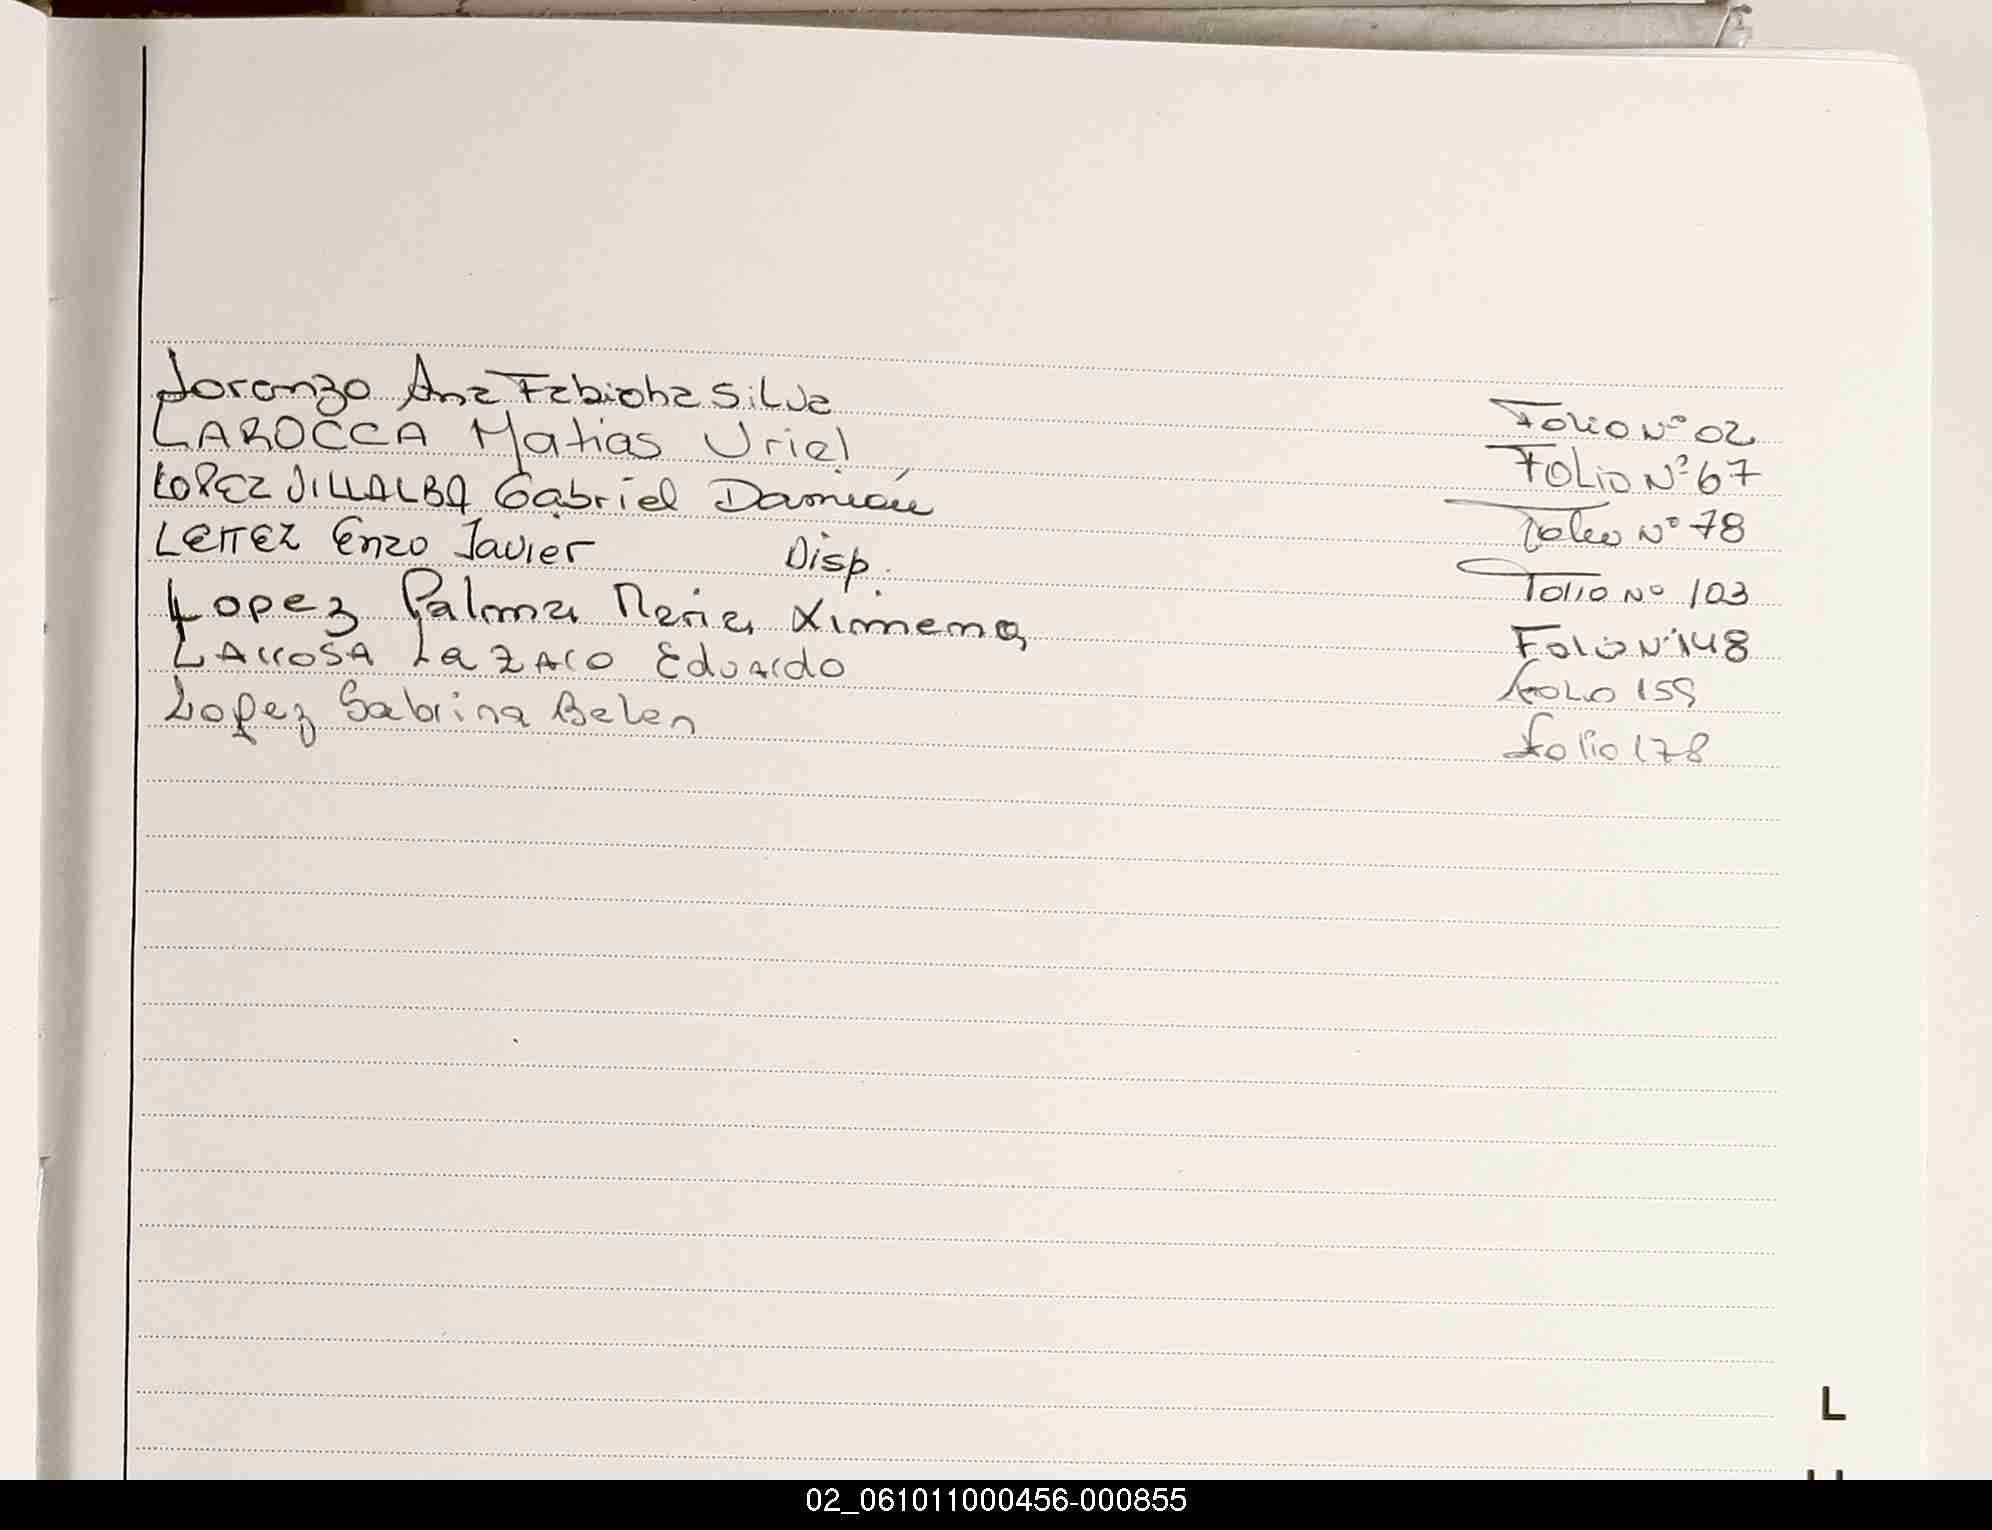 Lorenzo Ana Fabiola Silva Folio Nº 02
LAROCCA Matias Uriel Folio Nº 67
LOPEZ VILLALBA Gabriel Damián Folio Nº 78
LEITEZ Enzo Javier Disp. Folio Nº 103
Lopez Palma Maria Ximena Folio Nº 148
LARROSA LaZARO Eduardo Folio 159
Lopez Sabrina Belen folio 178
L
02_061011000456-000855